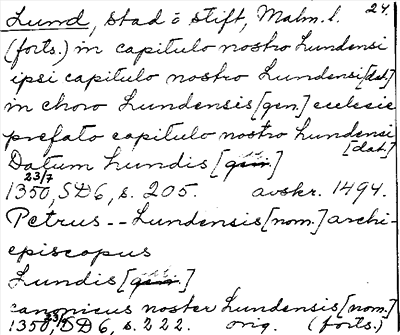 Lund, stad o stift, Malm. l. 24.
(forts.) in capitulo nostro Lundensi
ipsi capitulo nostro Lundensi [dat.]
in choro Lundensis [gen.] ecclesie
prefato capitulo nostro Lundensi
[dat.]
Datum Lundis [gen.]
23/7
1350, SD6, s. 205. avskr. 1494.
Petrus -- Lundensis [nom.] archi-
episcopus
Lundis [gen.]
canonicus noster Lundensis [nom.]
1350, SD6, s. 222. orig. (forts.)